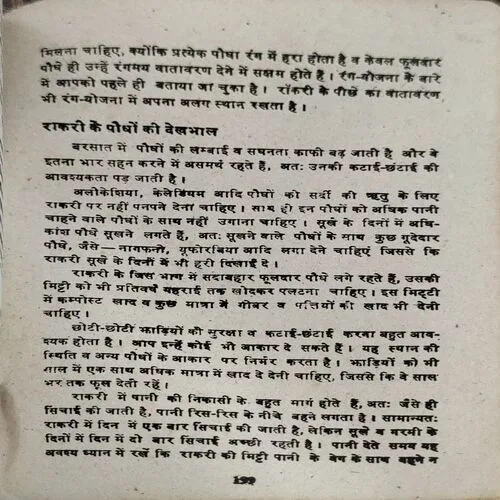 मिलना चाहिए, क्योंकि प्रत्येक पौधा रंग में हरा होता है व केवल फूलदार
पौधे ही उन्हें रंगमय वातावरण देने में सक्षम होते हैं। रंग-योजना के बारे
में आपको पहले ही बताया जा चुका है। रॉकरी के पीछे का वातावरण
भी रंग-योजना में अपना अलग स्थान रखता है।
राकरी के पौधों की देखभाल
बरसात में पौधों की लम्बाई व सघनता काफी बढ़ जाती है और वे
इतना भार सहन करने में असमर्थ रहते हैं, अतः उनकी कटाई-छंटाई की
आवश्यकता पड़ जाती है।
अलोकेशिया, केलेडियम आदि पौधों को सर्दी की ऋतु के लिए
राकरी पर नहीं पनपने देना चाहिए। साथ ही इन पौधों को अधिक पानी
चाहने वाले पौधों के साथ नहीं उगाना चाहिए। सूखे के दिनों में अधि-
कांश पौधे सूखने लगते हैं, अतः सूखने वाले पौधों के साथ कुछ गूदेदार
पौधे, जैसे—नागफनी, यूफोरबिया आदि लगा देने चाहिएं जिससे कि
राकरी सूखे के दिनों में भी हरी दिखाई दे।
राकरी के जिस भाग में सदाबहार फूलदार पौधे लगे रहते हैं, उसकी
मिट्टी को भी प्रतिवर्ष गहराई तक खोदकर पलटना चाहिए। इस मिट्टी
में कम्पोस्ट खाद व कुछ मात्रा में गोबर व पत्तियों की खाद भी देनी
चाहिए।
छोटी-छोटी झाड़ियों की सुरक्षा व कटाई-छंटाई करना बहुत आव-
श्यक होता है। आप इन्हें कोई भी आकार दे सकते हैं। यह स्थान की
स्थिति व अन्य पौधों के आकार पर निर्भर करता है। झाड़ियों को भी
साल में एक साथ अधिक मात्रा में खाद दे देनी चाहिए, जिससे कि वे साल
भर तक फूल देती रहें।
राकरी में पानी की निकासी के बहुत मार्ग होते हैं, अतः जैसे ही
सिंचाई की जाती है, पानी रिस-रिस के नीचे बहने लगता है। सामान्यतः
राकरी में दिन में एक बार सिंचाई की जाती है, लेकिन सूखे व गरमी के
दिनों में दिन में दो बार सिंचाई अच्छी रहती है। पानी देते समय यह
अवश्य ध्यान में रखें कि राकरी की मिट्टी पानी के वेग के साथ बहने न